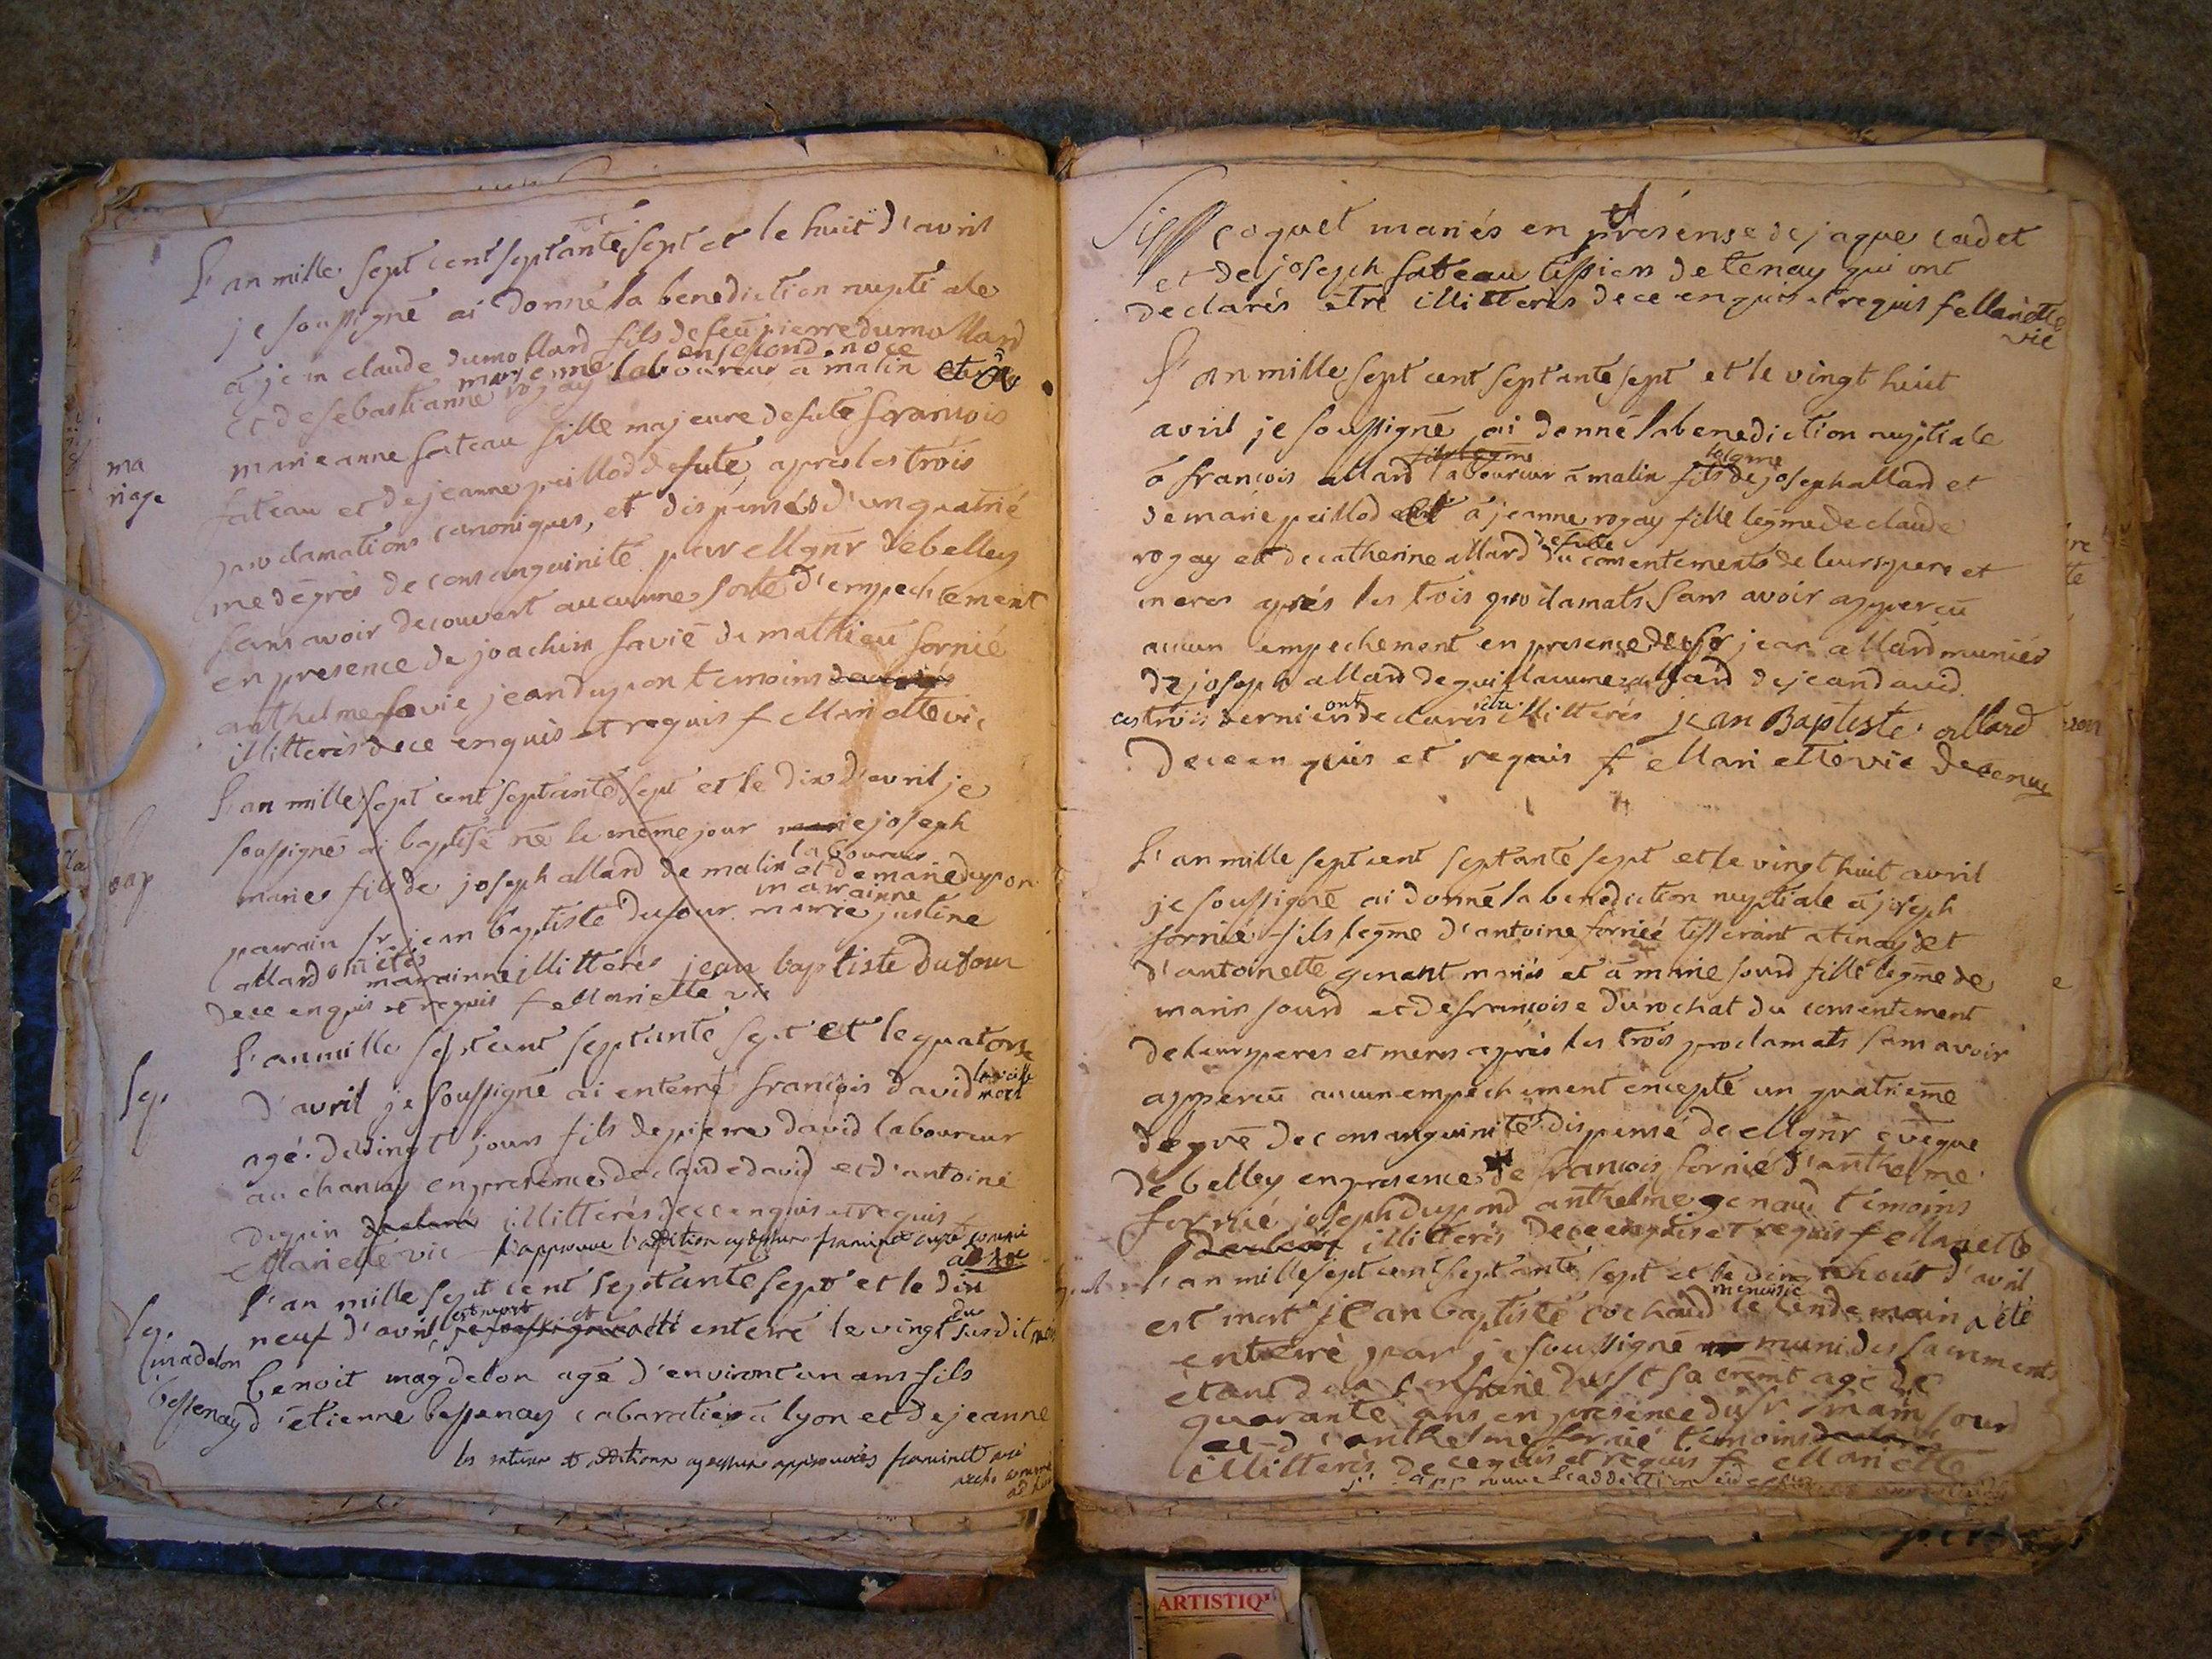 L'an mille sept cent septante sept et le huit d'avril
je soussigné ai donné la benediction nuptiale
à jean claude dumollard fils de feu pierre dumollard
en second noce
et de sebastianne rogay laboureur à malin et à
marie anne fateau fille majeure de fute francois
ma
riage
fateau et de jeanne peillod defute, apres les trois
proclamations canoniques, et dispensés d'un quatrié
me degrés de consanguinité par Mgnr de belley
sans avoir decouvert aucunne sorte d'empechement
en presence de joachim savié de mathieu fornié
anthelme savie jean dupon temoins
illitterés de ce enquis et requis f Mariette vic
L'an mille sept cent septante sept et le dix d'avril je
soussigné ai baptisé né le même jour marie joseph
laboureur
bap
mariés fils de joseph allard de malin et de marie dupon
marainne
parain sr jean baptiste dufour marie justine
allard marainne illitterés jean baptiste Dufour
de ce enquis et requis f Mariette vic
L'an mille sept cent septante sept et le quatorze
Sep.
d'avril je soussigné ai enterré francois david mort
la veille
agé de vingt jours fils de pierre david laboureur
au chanay en presence de claude david et d'antoine
dupin illitterés de ce enquis et requis
Mariette vic j'approuve l'addition cydessus framinet curé comme
ad hoc
L'an mille sept cent septante sept et le dix
est mort et du
Sep.
neuf d'avril je soussigné a été enterré le vingt susdit mois
madelon
benoit magdelon agé d'environt un ans fils
bessenay
d'étienne bessenay cabaratier à lyon et de jeanne
les ratures et additions cydessus approuvées framinet curé
comme
ad hoc
coquet mariés en présense de jaque cadet
et de joseph fateau tissien de tenay qui ont
declarés être illitterés de ce enquis et requis f Mariette
vic
L'an mille sept cent septante sept et le vingt huit
avril je soussigné ai donné la benediction nuptiale
fils legme legme
à francois allard laboureur à malin fils de joseph allard et
de marie peillod et à jeanne rogay fille legme de claude
defute
rogay et de catherine allard du consentements de leurs pere et
meres après les trois proclamats sans avoir apperçu
aucun empechement en presence de sr jean allard munier
de joseph allard de guillaume allard de jean david
ont être
ces trois derniers declarés illitterés jean Baptiste allard
de ce enquis et requis f Mariette vic de tenay
L'an mille sept cent septante sept et le vingt huit avril
je soussigné ai donné la benediction nuptiale à joseph
fornié fils legme d'antoine fornié tisserant a tenay et
d'antoinette genant mariés et à marie sourd fille legme de
marin sourd et de françoise durochat du consentement
de leurs peres et meres après les trois proclamats sans avoir
apperçu aucun empechement excepté un quatrieme
degré de consanguinité dispensé de Mgnr evêque
de belley en presence de francois fornié d'anthelme
fornié joseph dupond anthelme genaud témoins
illitterés de ce enquis et requis f Mariette
L'an mille sept cent septante sept et le vint huit d'avril
menusie
est mort jean baptiste cochaud le lendemain a été
enterré par je soussigné muni des sacrements
étant de la confrérie du st sacremt agé de
quarante ans en presence du sr marin sourd
et d'anthelme fornié temoins
illitterés de ce enquis et requis f Mariette
j'approuve l'addition cidessus
ARTISTIQ